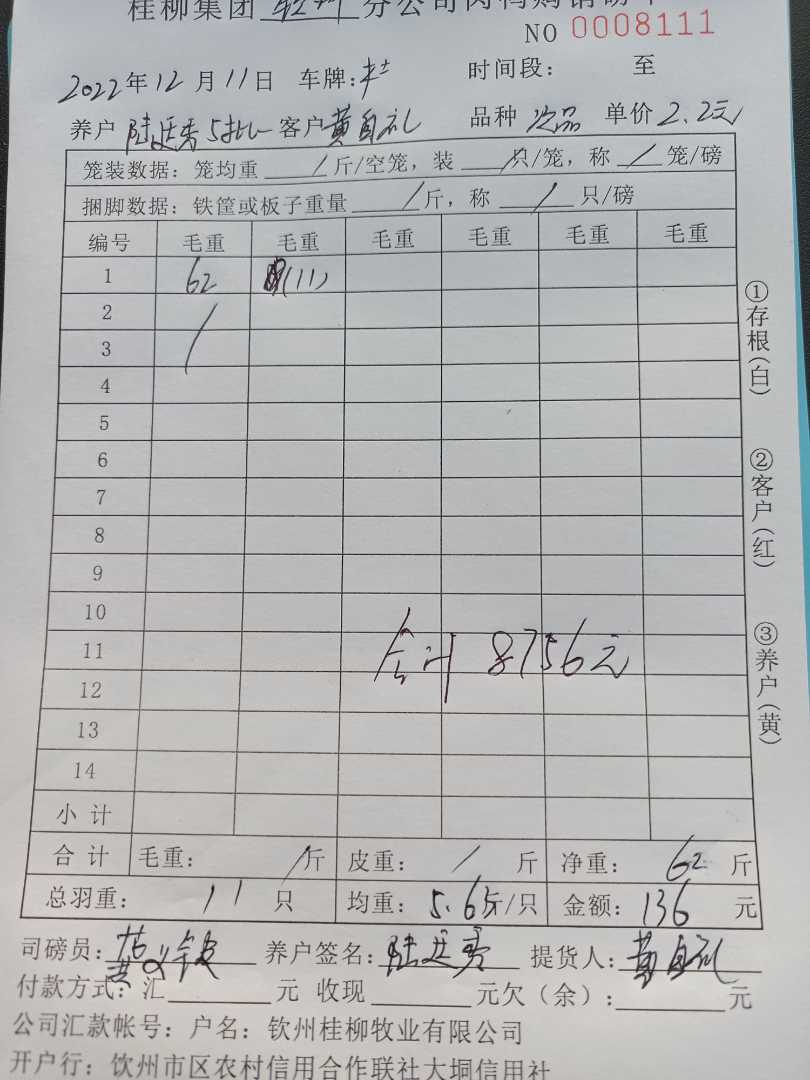 桂柳集团 钦州 分公司肉鸭购销磅单
NO 0008111
2022年12月11日 车牌: 时间段： 至
养户 陆廷秀5批 客户黄自礼 品种 次品 单价2.2元
笼装数据：笼均重 / 斤/空笼，装 / 只/笼，称 / 笼/磅
捆脚数据：铁筐或板子重量 / 斤，称 / 只/磅
编号 毛重 毛重 毛重 毛重 毛重 毛重
1 62 (11)
2 /
3
4
5
6
7
8
9
10
11 合计 8756元
12
13
14
小计
合计 毛重： / 斤 皮重： / 斤 净重： 62 斤
总羽重： 11 只 均重： 5.6斤/只 金额： 136 元
司磅员： 养户签名：陆廷秀 提货人：黄自礼
付款方式：汇 元 收现 元欠（余）： 元
公司汇款帐号：户名：钦州桂柳牧业有限公司
开户行：钦州市区农村信用合作联社大垌信用社
①存根（白）
②客户（红）
③养户（黄）